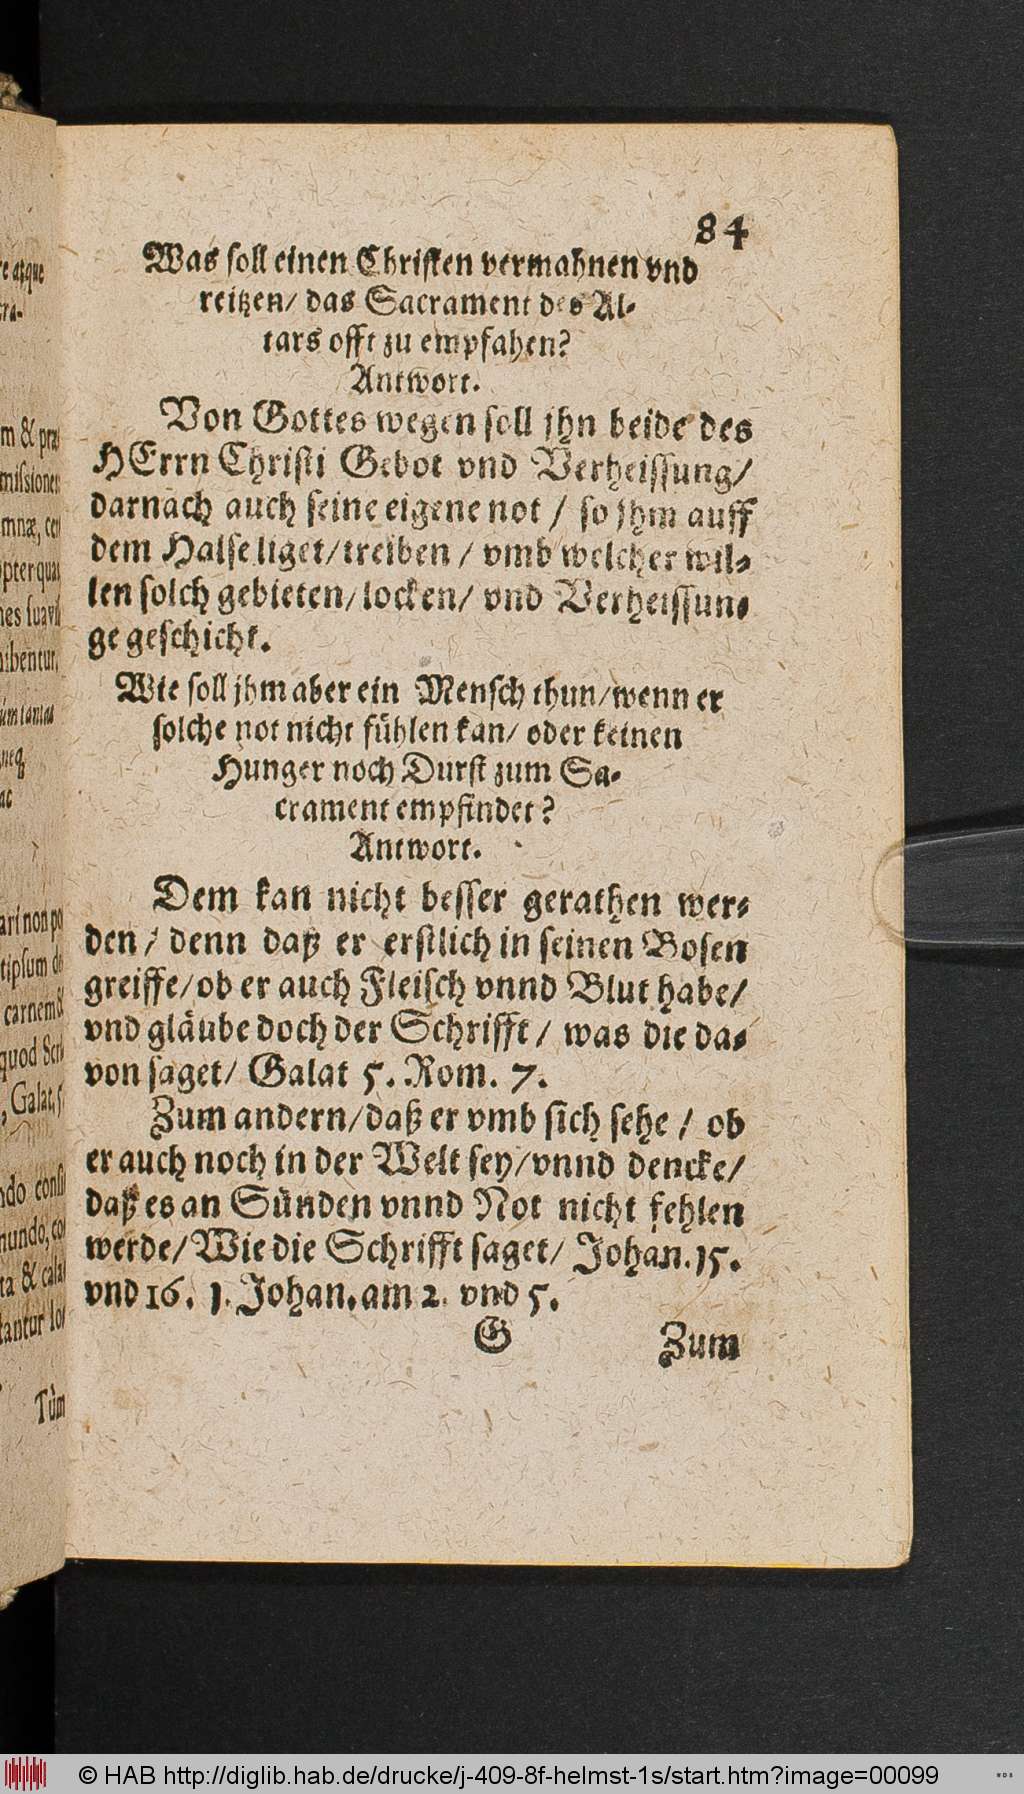 84
Was soll einen Christen vermahnen vnd
reitzen/ das Sacrament des Al-
tars offt zu empfahen?
Antwort.
Von Gottes wegen soll jhn beide des
HErrn Christi Gebot vnd Verheissung/
darnach auch seine eigene not / so jhm auff
dem Halse liget/ treiben / vmb welcher wil-
len solch gebieten/ locken/ vnd Verheissun-
ge geschicht.
Wie soll jhm aber ein Mensch thun/ wenn er
solche not nicht fühlen kan/ oder keinen
Hunger noch Durst zum Sa-
crament empfindet?
Antwort.
Dem kan nicht besser gerathen wer-
den / denn daß er erstlich in seinen Bosen
greiffe/ ob er auch Fleisch vnnd Blut habe/
vnd gläube doch der Schrifft / was die da-
von saget/ Galat 5. Rom. 7.
Zum andern/ daß er vmb sich sehe / ob
er auch noch in der Welt sey/ vnnd dencke/
daß es an Sünden vnnd Not nicht fehlen
werde/ Wie die Schrifft saget/ Johan. 15.
vnd 16. 1. Johan. am 2. vnd 5.
G Zum
atque
m & præ
missiones
mnæ, cer
opter quas
ari non po
tipsum de
carnem &
quod Scri
, Galat. 5
mundo, co
ta & cala
Tùm
© HAB http://diglib.hab.de/drucke/j-409-8f-helmst-1s/start.htm?image=00099